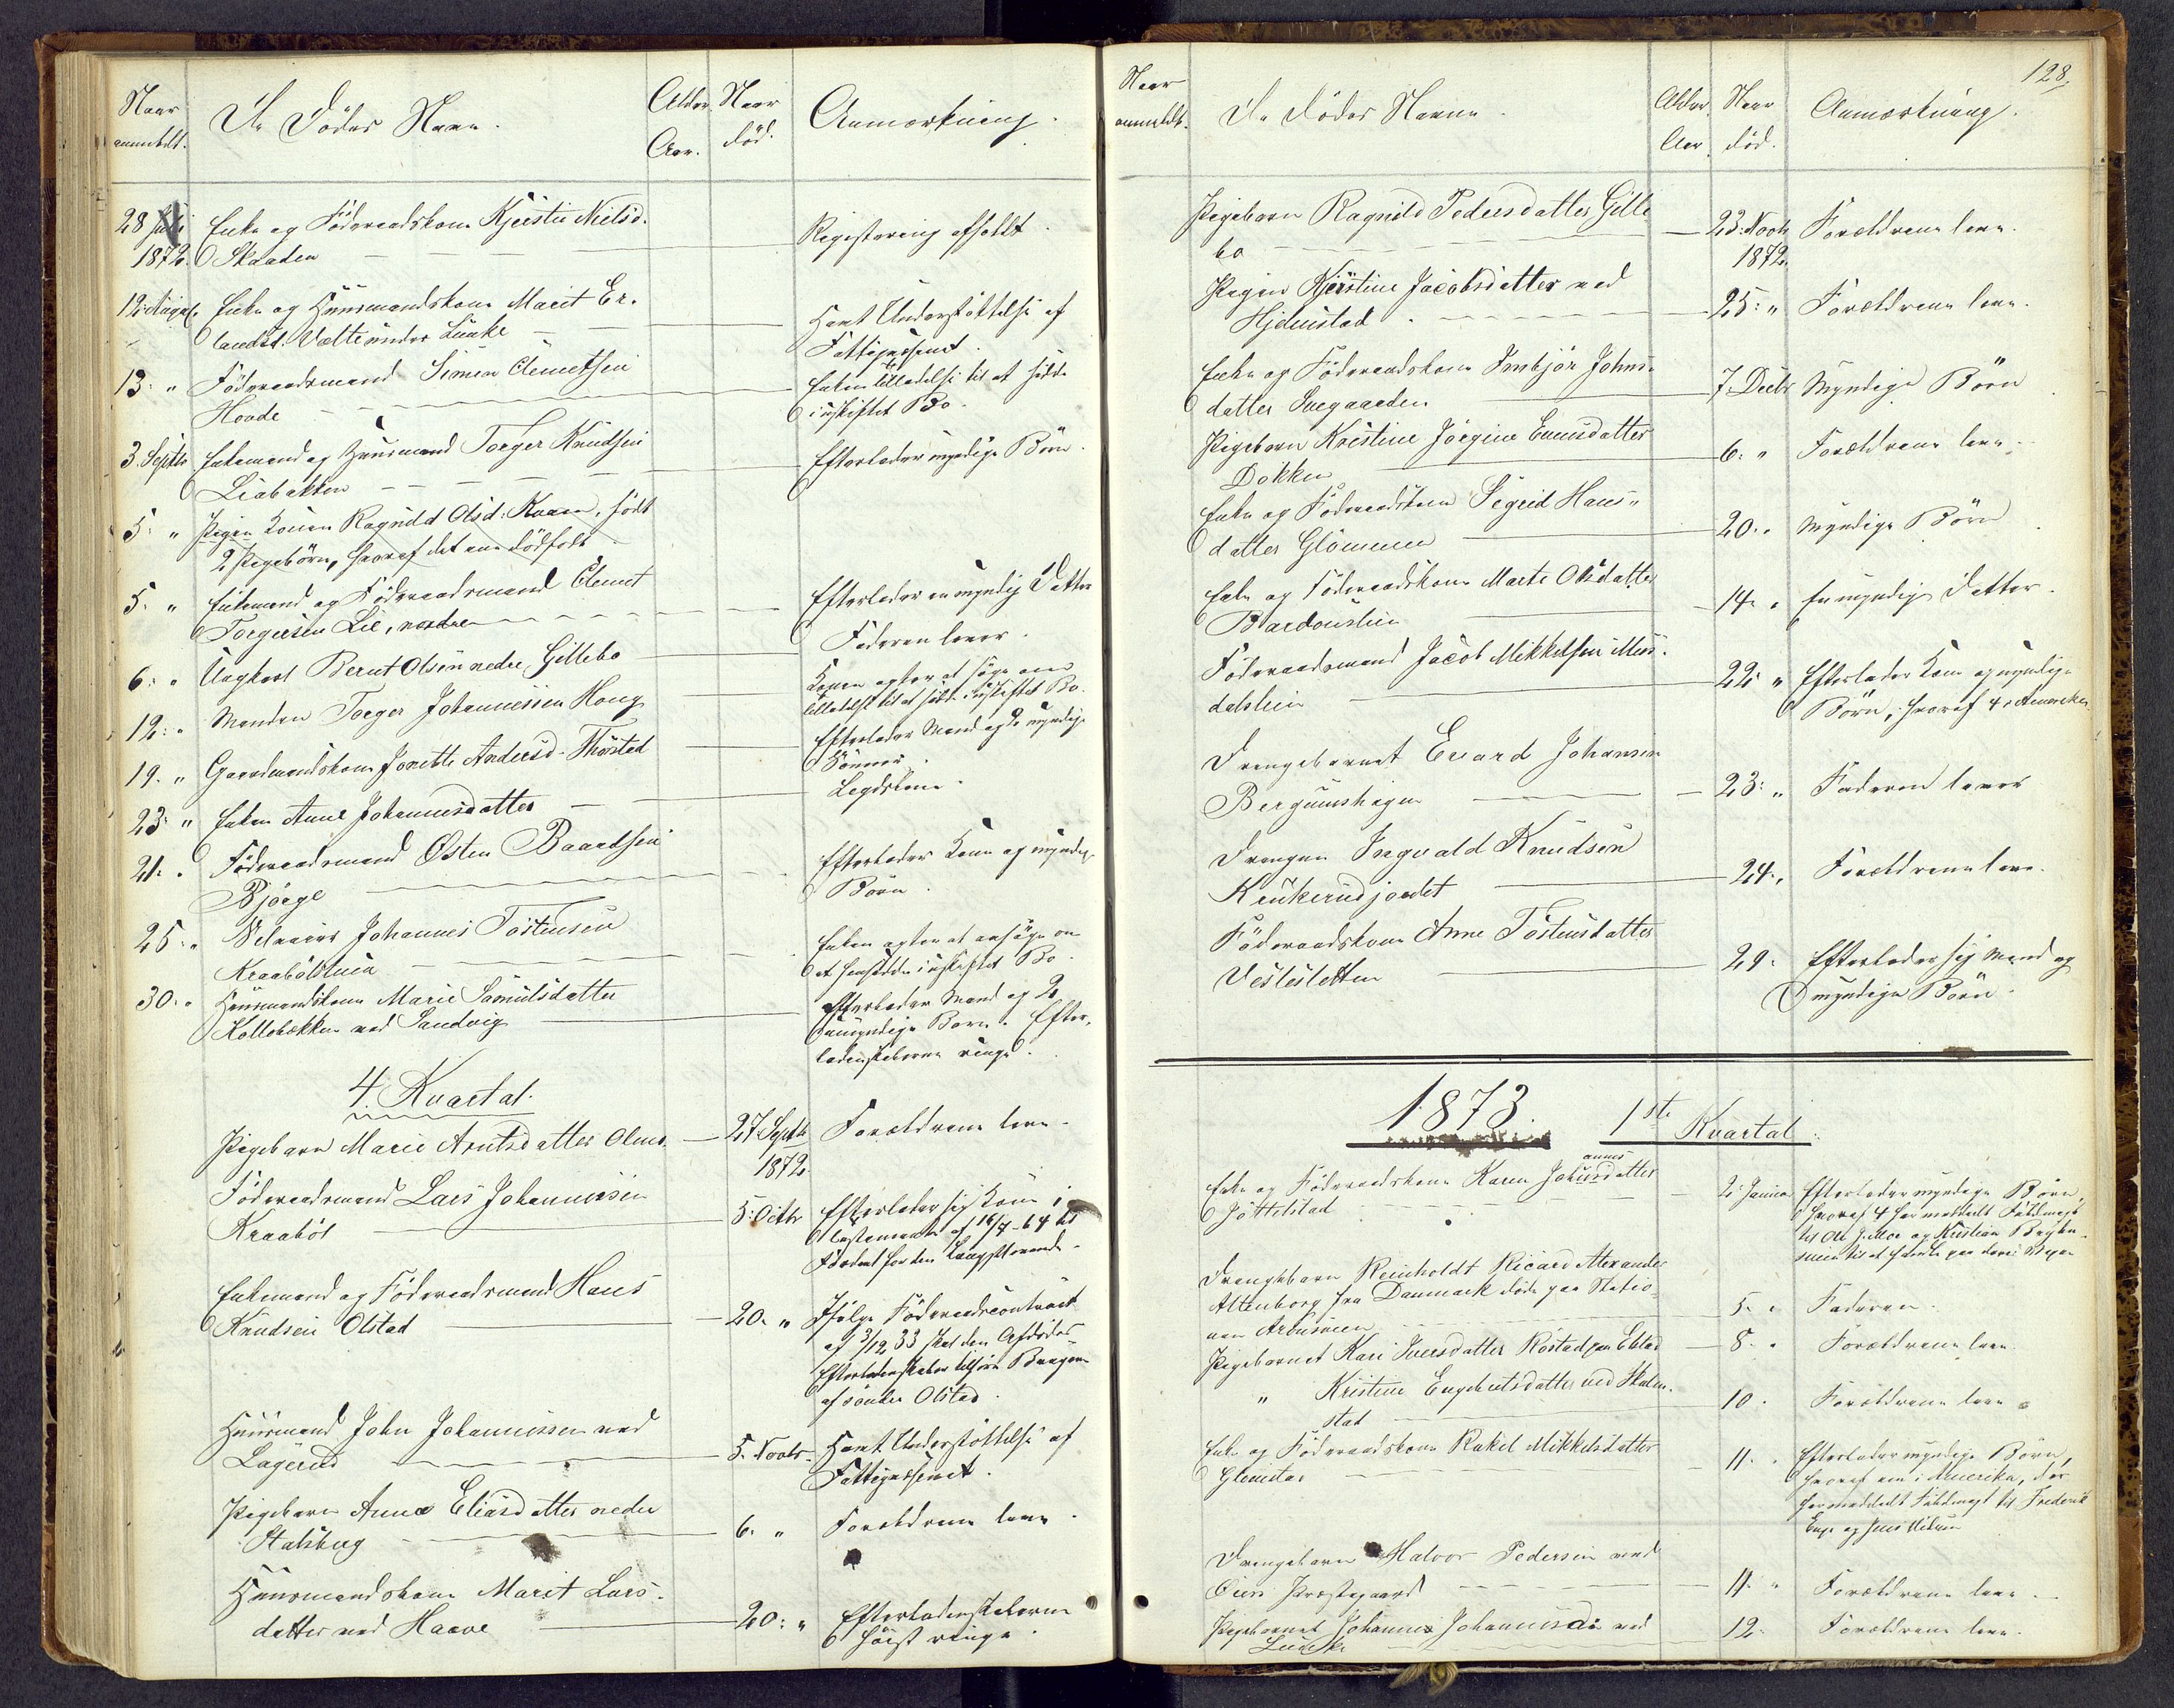 Naar
anmeldt.
De Dödes Navn.
Alder.
Aar.
Naar
död.
Anmærkning.
28 Juli
1872.
Enke og Föderaadskone Kjersti Nielsd.
Skaaden
Registrering afholdt.
12: August.
Enke og Huusmandskone Marit Er-
landsd. Vælte under Lunke
Havt Understöttelse af
Fattigvæsenet.
13. "
Föderaadsmand Simen Clemetsen
Hovde
Enken tilladelse til at sidde
i uskiftet Bo.
3. Septbr
Enkemand og Huusmand Torger Knudsen
Liabakken
Efterlader myndige Börn.
5. "
Pigen Konen Ragnild Olsd. Kvaen, födt
2 Pigebörn, hvoraf det ene dödfödt
5. "
Enkemand og Föderaadsmand Clemet
Torgersen Lie, nordre
Efterlader en myndig Datter
6. "
Ungkarl Bernt Olsen nedre Gillebo
Faderen lever.
12. "
Manden Torger Johannessen Haug
Konen agter at söge om
tilladelse til at sidde i uskiftet Bo.
19. "
Gaardmandskone Jonette Andersd. Thorstad
Efterlader Mand og 2 myndige
Sönner.
23. "
Enken Anne Johannesdatter
Legdskone
21. "
Föderaadsmand Östen Baardsen
Björge
Efterlader Kone og myndige
Börn.
25. "
Selveier Johannes Tostensen
Kraabölstuen
Enken agter at ansöge om
at hensidde i uskiftet Bo.
30. "
Huusmandskone Marie Samuelsdatter
Kollebækken ved Sandvig
Efterlader Mand og 2
umyndige Börn. Efter-
ladenskaberne ringe.
4. Kvartal.
Pigebarn Marie Arntsdatter Olms.
27. Septb.
1872.
Forældrene leve.
Föderaadsmand Lars Johannessen
Kraaböl
5. Octbr
Efterlader sig Kone i
Testamente af 16/7-64 til
Fordeel for den Længstlevende.
Enkemand og Föderaadsmand Hans
Knudsen Olstad
20. "
Ifölge Föderaadscontract
af 3/12 33 skal den Afdödes
Efterladenskaber tilhöre Brugeren
af söndre Olstad.
Huusmand John Johannessen ved
Lagerud
5. Novbr.
Havt Understöttelse af
Fattigvæsenet.
Pigebarn Anne Eliasdatter nedre
Stalsberg
6. "
Forældrene leve.
Huusmandskone Marit Lars-
datter ved Haave
20. "
Efterladenskaberne
höist ringe.
128.
Naar
anmeldt.
De Dödes Navne.
Alder.
Aar.
Naar
död.
Anmærkning.
Pigebarn Ragnild Pedersdatter Gille
bo
23. Novb.
1872.
Forældrene leve.
Pigen Kjerstine Jacobsdatter ved
Hjelmstad
25. "
Forældrene leve.
Enke og Föderaadskone Imbjör Johns-
datter Svegaarden
7. Decbr
Myndige Börn
Pigebarn Kristine Jörgine Evensdatter
Dokken
6. "
Forældrene leve.
Enke og Föderaadskone Sigrid Hans-
datter Glömmen
20. "
Myndige Börn
Enke og Föderaadskone Marte Olsdatter
Bardonslien
14. "
En myndig Datter.
Föderaadsmand Jacob Mikkelsen Mes-
dalslien
22. "
Efterlader Kone og myndige
Börn, hvoraf 4 i Amerika.
Drengebarnet Evard Johansen
Bergumshagen
23. "
Faderen lever
Drengen Ingvald Knudsen
Kinkerudjordet
24. "
Forældrene leve.
Föderaadskone Anne Tostensdatter
Vestesletten
29.
Efterlader sig Mand og
myndige Börn.
1873.
1ste Kvartal.
annes
Enke og Föderaadskone Karen Johansdatter
Jöttelstad
2. Januar
Efterlader myndige Börn,
hvoraf 4 har meddelt Fuldmagt
til Ole Gillebo og Kristian
til at
Drengebarn Reinholdt Ricard Alexander
Altenborg fra Danmark döde paa Statio-
nen Arbusveen
5. "
Faderen.
Pigebarnet Kari Iversdatter Rostad paa Ebstad
8. "
Forældrene leve.
" Kristine Engebretsdatter ved Skalm-
stad
10.
Forældrene leve.
Enke og Föderaadskone Rakel Mikkelsdatter
Glemstad
11. "
Efterlader myndige Börn,
hvoraf een i Amerika, der
har meddelt Fuldmagt til Frederik
Enge og
Drengebarn Halvor Pedersen ved
Öien Præstegaard
11. "
Forældrene leve.
Pigebarnet Johanne Johannesd. ved
Lunke
12.
Forældrene leve.